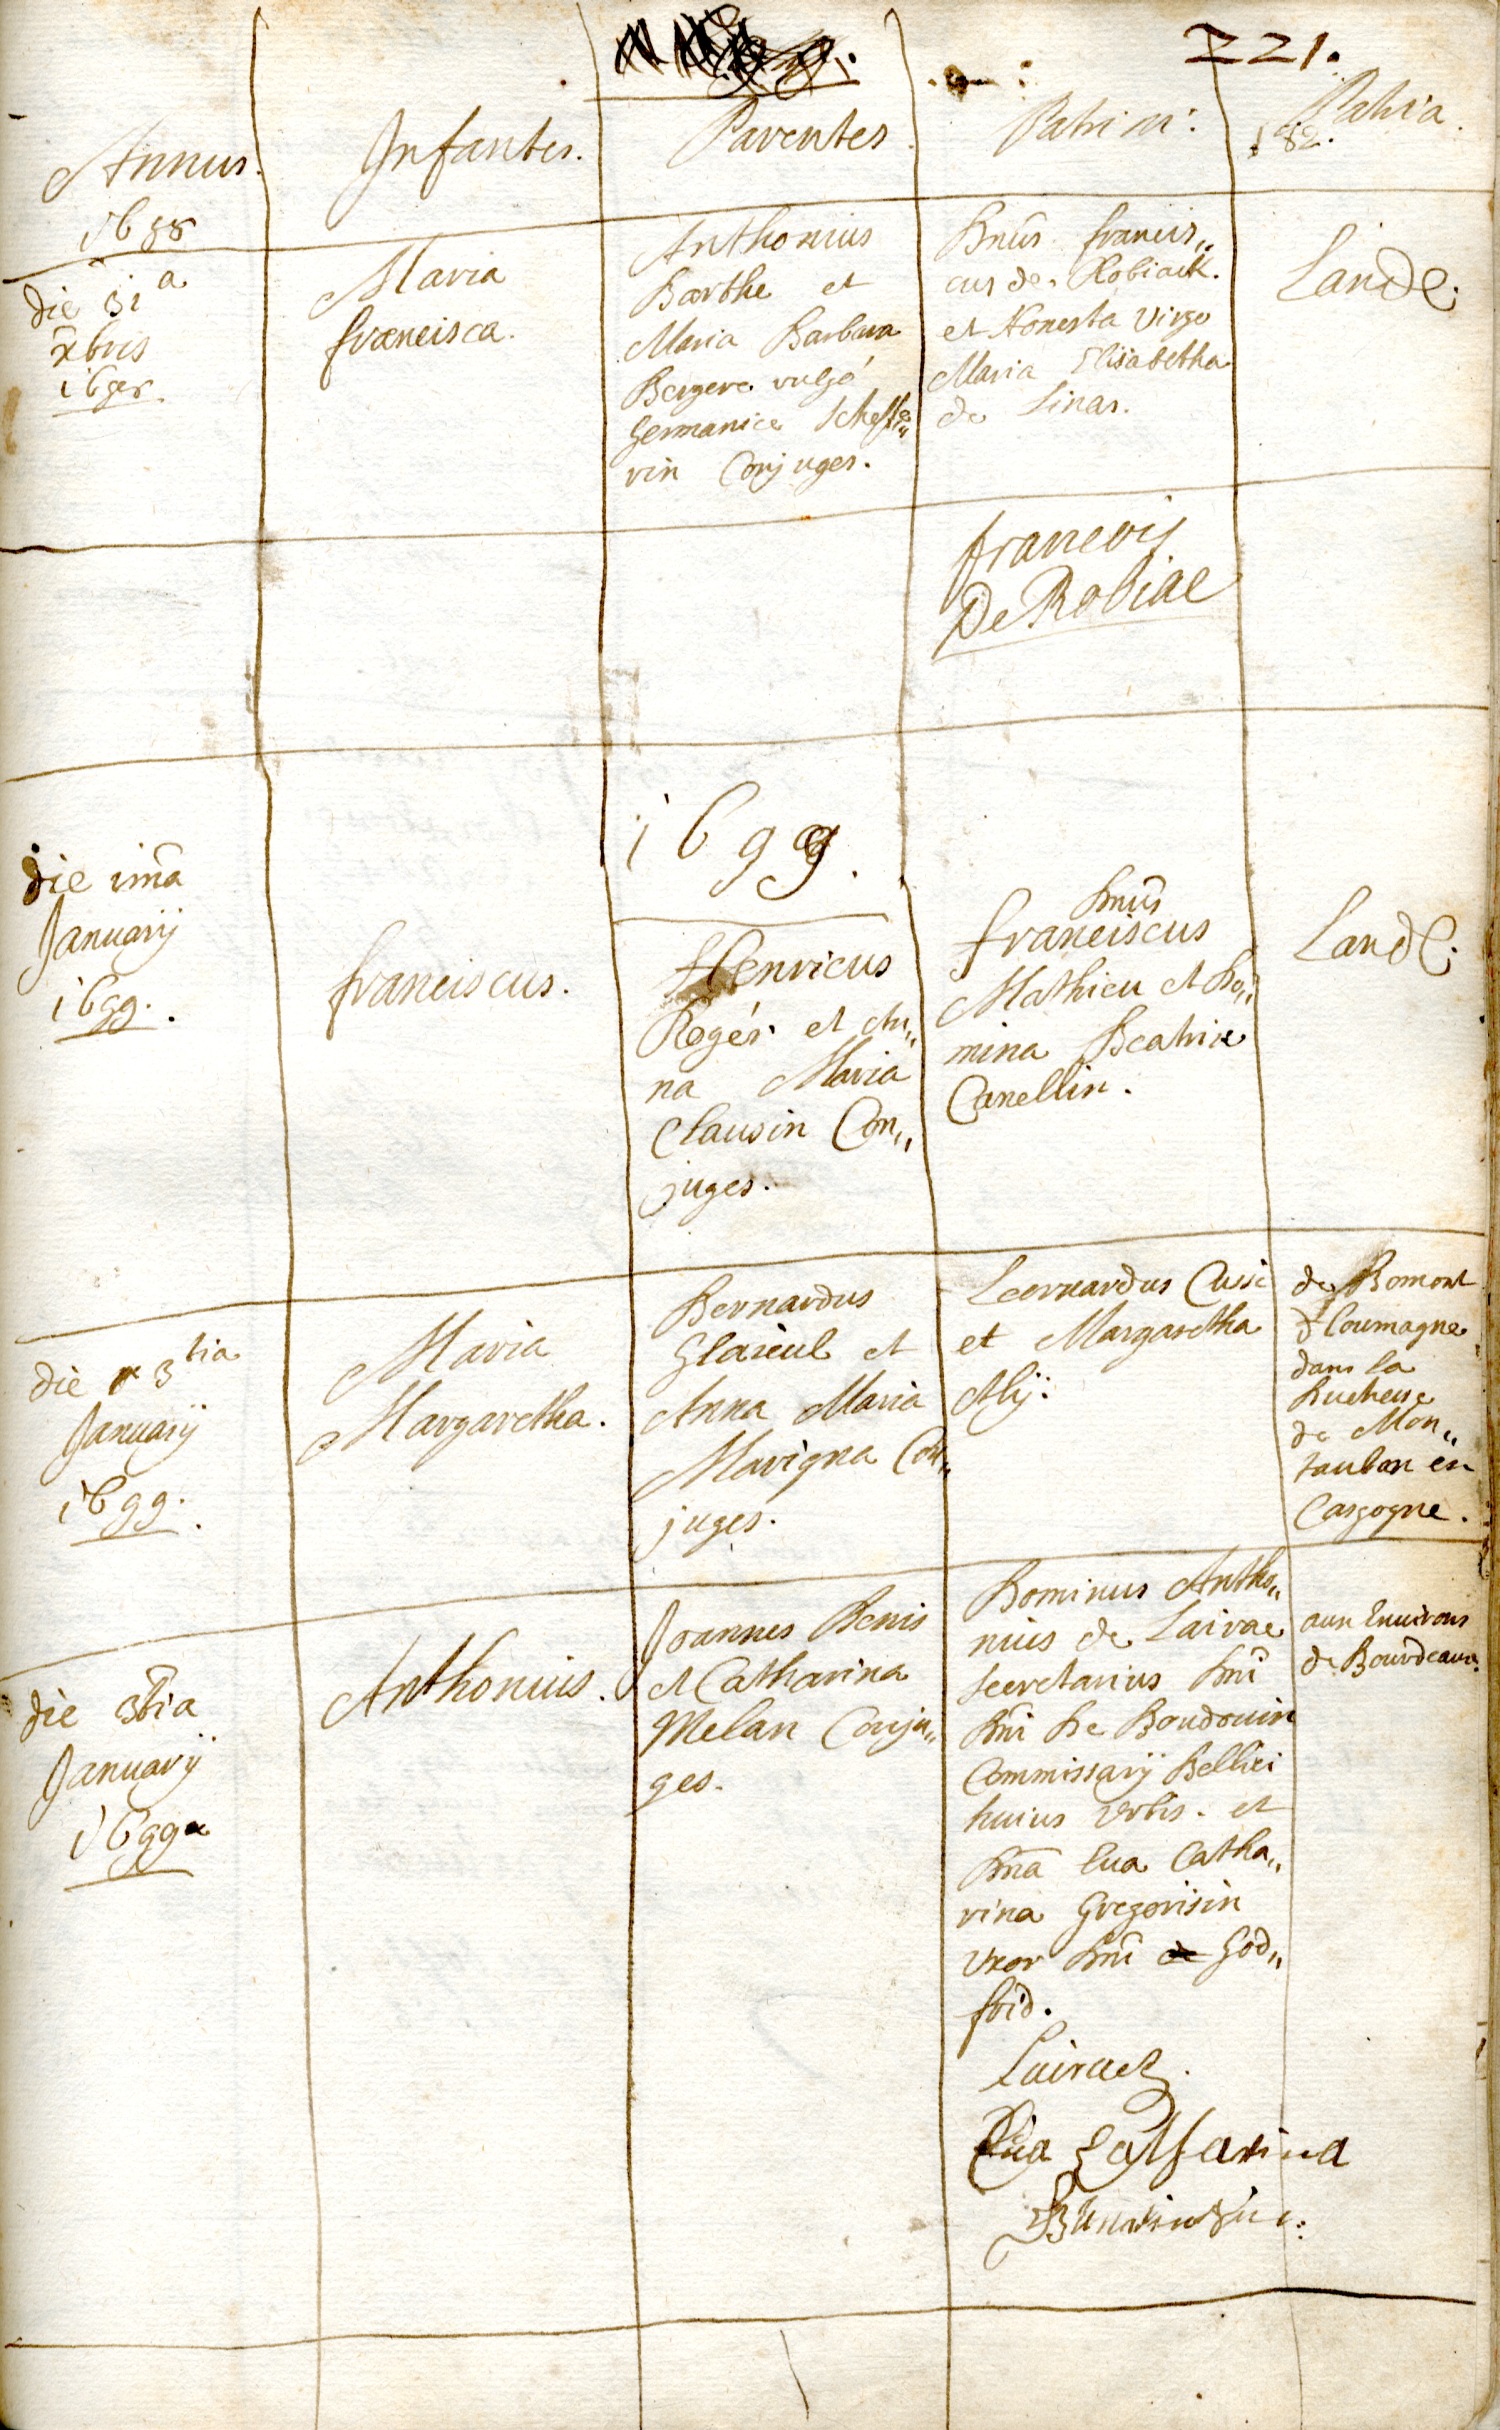 221.
Annus.
Infantes.
Parentes.
Patrini:
Patria.
182.
1698
die 31a
xbris
1698.
Maria
francisca.
Anthonius
Barthe et
Maria Barbara
Bergere vulgò
Germanice Scheffe„
rin Conjuges.
Dnûs francis„
cus de Robiack.
et Honesta Virgo
Maria Elisabetha
de Linar.
Lande.
francois
De Robiac
1699.
die imâ
Januarij
1699.
franciscus.
Henricus
Rogér et An„
na Maria
Clausin Con„
juges.
Dnûs
franciscus
Mathieu et Do„
mina Beatrix
Canellin.
Lande.
die 3tia
Januarij
1699.
Maria
Margaretha.
Bernardus
Glaieul et
Anna Maria
Marigna Con„
juges.
Leernardus Cussé
et Margaretha
Aly:
de Bomont
d Loumagne
dans la
Duchesse
de Mon„
tauban en
Casgogne.
die 3tîa
Januarij
1699
Anthonius.
Joannes Denis
et Catharina
Melan Conju„
ges.
Dominus Antho„
nius de Lairac
secretarius Dnî
Dnî De Boudouin
Commissarij Bellici
huius Vrbis. et
Dnâ Eua Catha„
rina Gregorisin
Vxor Dnî de God„
froid.
aux Enuirons
de Bourdeaux.
Lairac
Eua Catharina